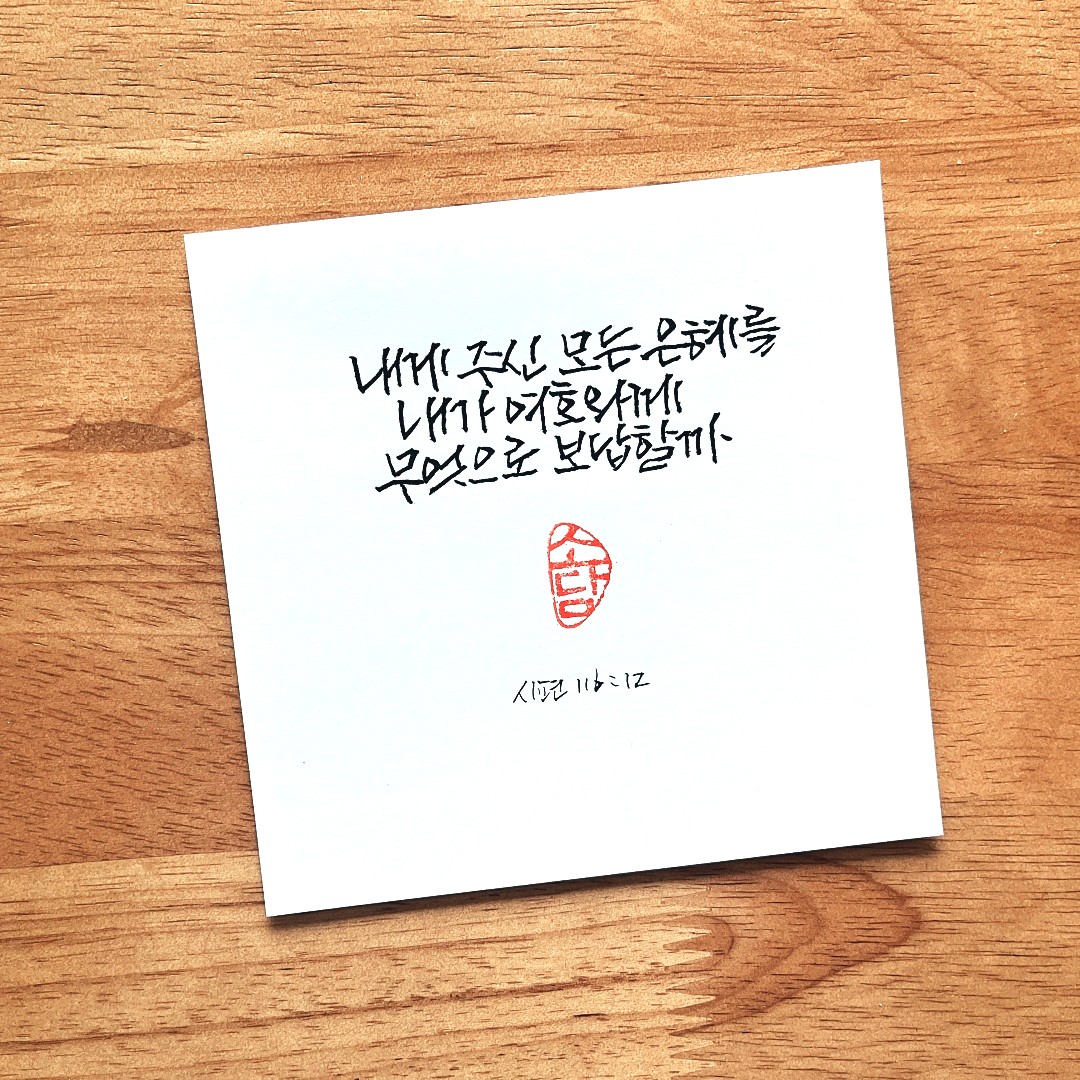 내게 주신 모든 은혜를
내가 여호와께
무엇으로 보답할까.
소담
시편 116:12